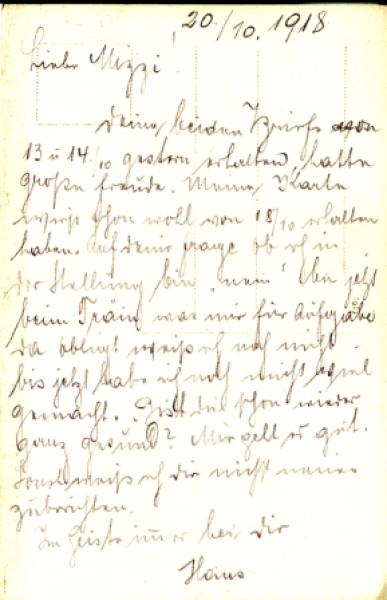 20./10. 1918
Liebe Mizzi!
Deine beiden Briefe von
13 u 14./10 gestern erhalten, hatte
große Freude. Meine Karte
wirst schon wohl von 18/10 erhalten
haben. Auf deine Frage ob ich in
der Stellung bin "nein" bin jetzt
beim Train was mir für Aufgabe
da obliegt weiß ich noch nicht
bis jetzt habe ich noch nicht viel
gemacht. Bist du schon wieder
ganz gesund? Mir geht's gut.
Sonst weiß ich dir nichts neues
zu berichten.
Im Geiste immer bei dir
Hans